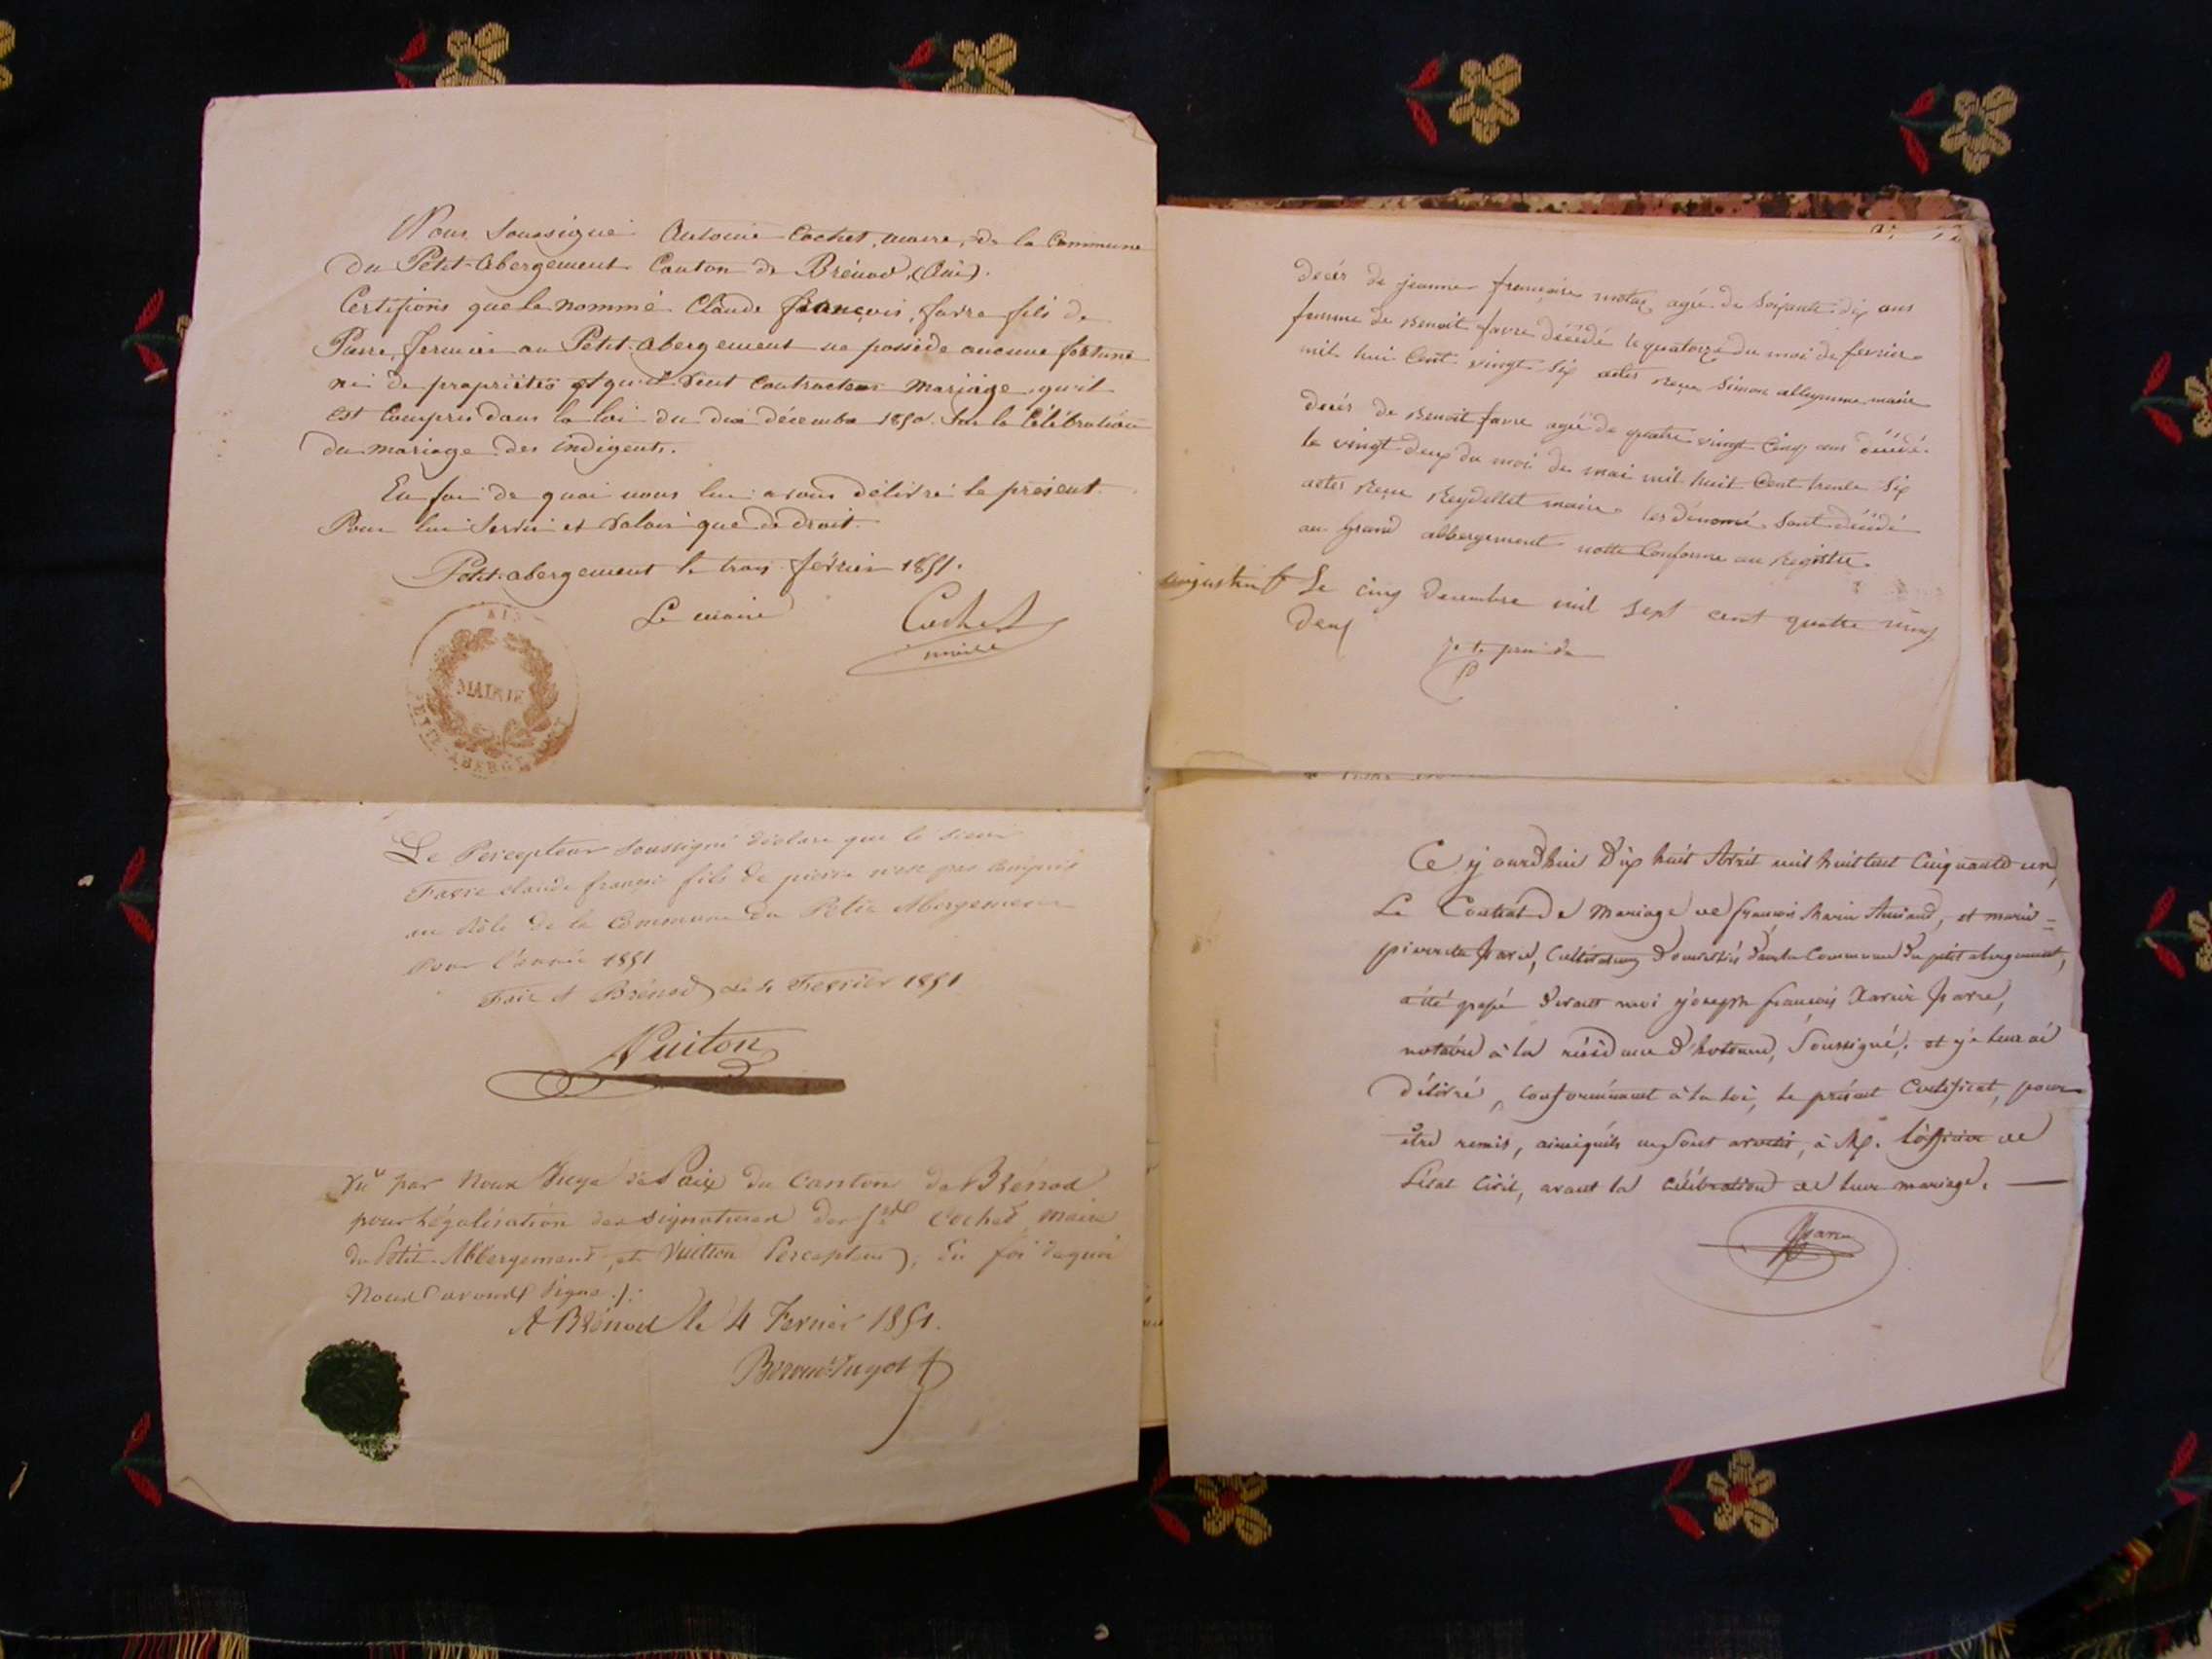 Nous Soussigné Antoine Cochet, maire, de la Commune
Du Petit-Abergement Canton de Brénod (Ain).
Certifions que le nommé Claude françois, favre fils de
Pierre, fermier au Petit-abergement ne possède aucune fortune
ni de propriétés et qu'il veut Contracter mariage, qu'il
est Compris dans la loi du dix décembre 1850. Sur la Célébration
du mariage des indigents.
En foi de quoi nous lui avons délivré le présent
Pour lui Servir et Valoir que de droit.
Petit-abergement le trois février 1851.
Le maire
Cochet
maire
AIN
MAIRIE
PETIT-ABERGEMENT
Le Percepteur soussigné déclare que le sieur
Favre claude françois fils de pierre n'est pas compris
au Rôle de la Commune du Petit Abergement
Pour l'année 1851
Fait à Brénod le 4 Fevrier 1851
Vuiton
Vu par Nous Juge de Paix du Canton de Brénod
pour légalisation des signatures des Srs Cochet maire
du Petit-Abbergement, et Vuitton Percepteur, En foi de quoi
Nous avons signé ./.
A Brénod le 4 Fevrier 1851.
decés de jeanne françoise agée de Soixante dix ans
femme de Benoit favre décédé le quatorze du moi de fevrier
mil hui Cent vingt Six actes Reçu Simon allegemme maire
decés de Benoit favre agée de quatre vingt Cinq ans décédé
le vingt deux du moi de mai mil huit Cent trente Six
actes Reçu Reydellet maire les dénomé Sont décédé
au grand abbergement notte Conforme au Registre
augustin f Le cinq decembre mil sept cent quatre ving
deux
Ce jourd'hui Dix huit Avril mil huit cent Cinquante un,
Le Contrat de Mariage de françois Marie, et marie =
pierrette favre, Cultivateurs Domiciliés dans la Commune du petit abergement,
a été passé devant moi Joseph françois Xavier favre,
notaire à la résidence d'hotonne, Soussigné; et je leur ai
délivré, conformément à la loi, le présent Certificat, pour
être remis, ainsi qu'ils en sont avertis, à Mr. l'officier de
l'état Civil, avant la célébration de leur mariage.
Favre